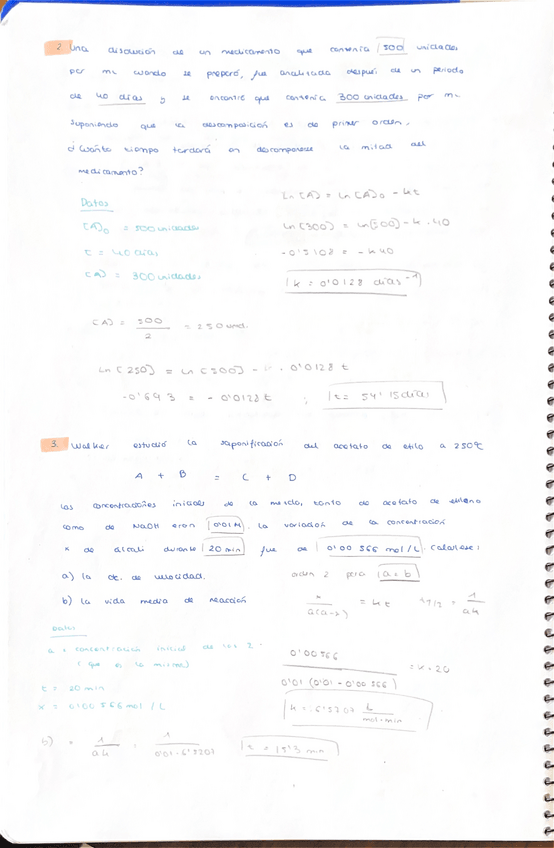 2. Una disolución de un medicamento que contenía 500 unidades
por mL cuando se preparó, fue analizada después de un periodo
de 40 días y se encontró que contenía 300 unidades por mL
suponiendo que la descomposición es de primer orden.
¿Cuánto tiempo tardará en descomponerse la mitad del
medicamento?
Datos
[A]₀ = 500 unidades
t = 40 días
[A] = 300 unidades
Ln [A] = Ln [A]₀ - kt
Ln (300) = Ln [500] - k · 40
-0'5108 = - k 40
k = 0'0128 días⁻¹
[A] = 500/2 = 250 und.
Ln [250] = Ln [500] - 0'0128 t
-0'693 = - 0'0128 t ; t = 54'15 días
3. Walker estudió la saponificación del acetato de etilo a 25ºC
A + B = C + D
Las concentraciones iniciales de la mezcla, tanto de acetato de etileno
como de NaOH eran 0'01M. La variación de la concentración
x de álcali durante 20 min fue de 0'00566 mol/L. Calculese:
a) la cte. de velocidad. orden 2 para a = b
b) la vida media de reacción
x / a(a-x) = kt t1/2 = 1 / ak
Datos
a = concentración inicial de los 2.
( que es la misma)
t = 20 min
x = 0'00566 mol / L
0'00566 / 0'01 (0'01 - 0'00566) = k · 20
k = 6'5207 L / mol·min
b) = 1 / ak = 1 / 0'01·6'5207 t = 15'3 min